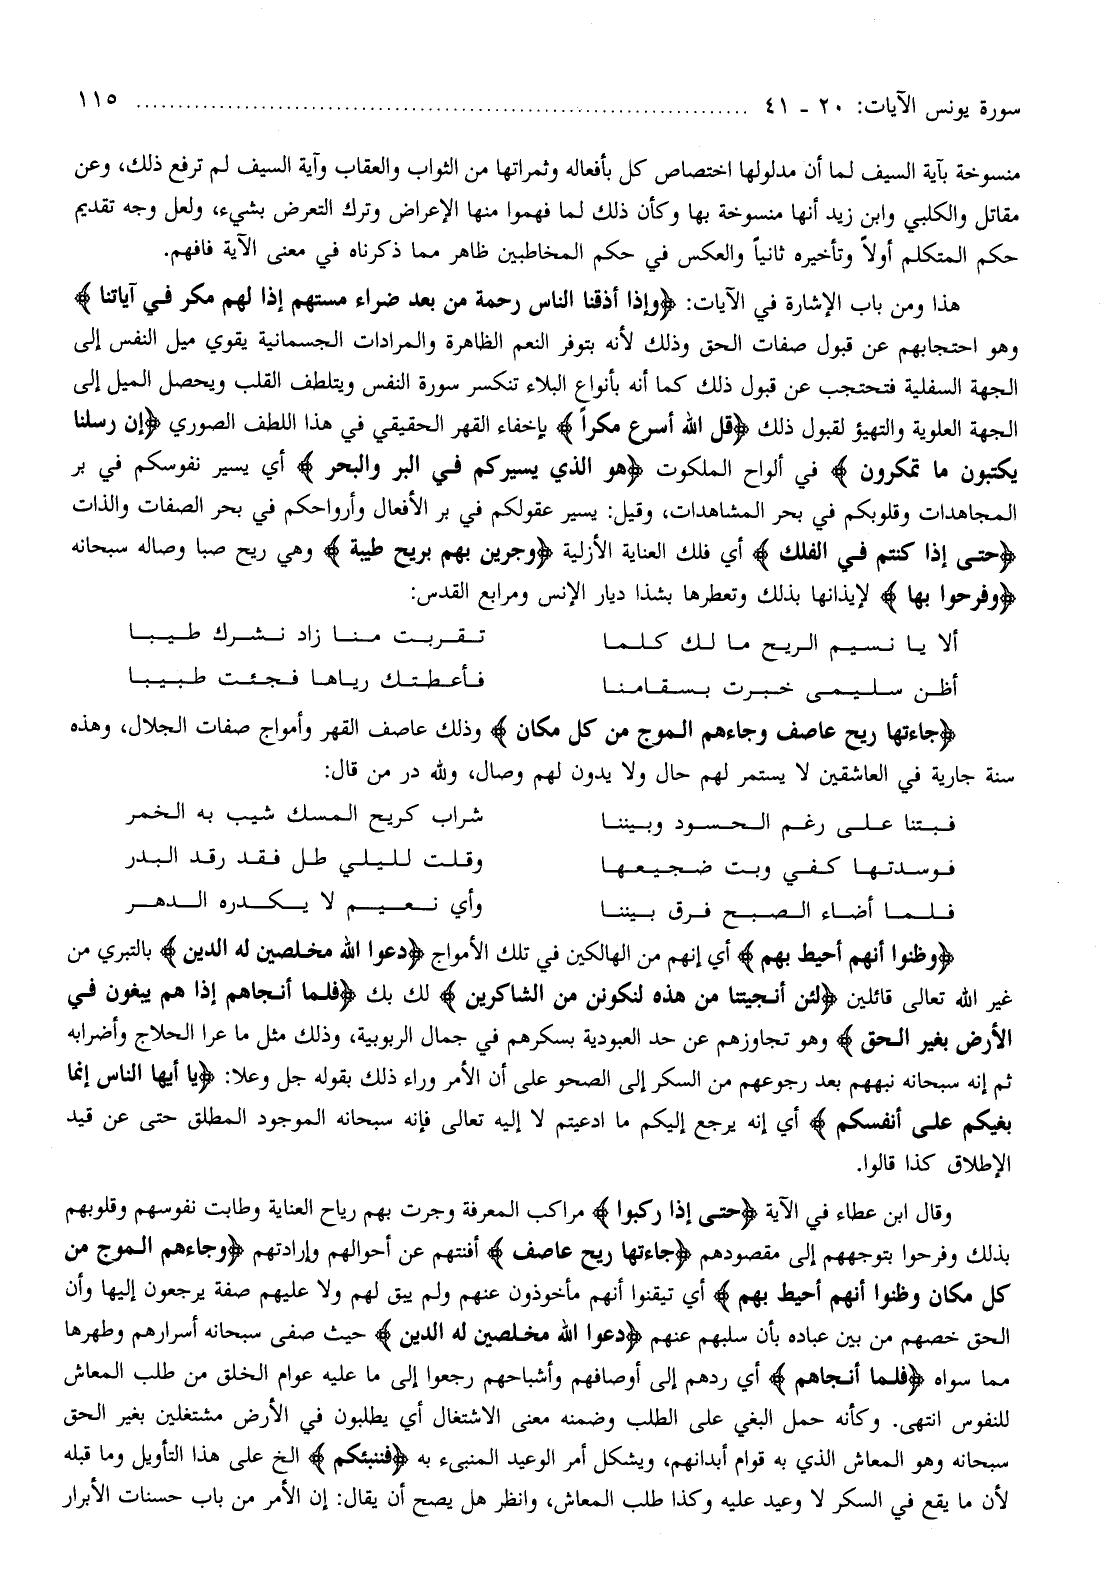 سورة يونس الآيات: ٢٠ - ٤١ ........................................ ١١٥
منسوخة بآية السيف لما أن مدلولها اختصاص كل بأفعاله وثمراتها من الثواب والعقاب وآية السيف لم ترفع ذلك، وعن
مقاتل والكلبي وابن زيد أنها منسوخة بها وكأن ذلك لما فهموا منها الإعراض وترك التعرض بشيء، ولعل وجه تقديم
حكم المتكلم أولاً وتأخيره ثانياً والعكس في حكم المخاطبين ظاهر مما ذكرناه في معنى الآية فافهم.
هذا ومن باب الإشارة في الآيات: ﴿وإذا أذقنا الناس رحمة من بعد ضراء مستهم إذا لهم مكر في آياتنا﴾
وهو احتجابهم عن قبول صفات الحق وذلك لأنه بتوفر النعم الظاهرة والمرادات الجسمانية يقوي ميل النفس إلى
الجهة السفلية فتحتجب عن قبول ذلك كما أنه بأنواع البلاء تنكسر سورة النفس ويتلطف القلب ويحصل الميل إلى
الجهة العلوية والتهيؤ لقبول ذلك ﴿قل الله أسرع مكراً﴾ بإخفاء القهر الحقيقي في هذا اللطف الصوري ﴿إن رسلنا
يكتبون ما تمكرون﴾ في ألواح الملكوت ﴿هو الذي يسيركم في البر والبحر﴾ أي يسير نفوسكم في بر
المجاهدات وقلوبكم في بحر المشاهدات، وقيل: يسير عقولكم في بر الأفعال وأرواحكم في بحر الصفات والذات
﴿حتى إذا كنتم في الفلك﴾ أي فلك العناية الأزلية ﴿وجرين بهم بريح طيبة﴾ وهي ريح صبا وصاله سبحانه
﴿وفرحوا بها﴾ لإيذانها بذلك وتعطرها بشذا ديار الإنس ومرابع القدس:
ألا يا نسيم الريح ما لك كلما تقربت منا زاد نشرك طيبا
أظن سليمى خبرت بسقامنا فأعطتك رياها فجئت طبيبا
﴿جاءتها ريح عاصف وجاءهم الموج من كل مكان﴾ وذلك عاصف القهر وأمواج صفات الجلال، وهذه
سنة جارية في العاشقين لا يستمر لهم حال ولا يدون لهم وصال، ولله در من قال:
فبتنا على رغم الحسود وبيننا شراب كريح المسك شيب به الخمر
فوسدتها كفي وبت ضجيعها وقلت لليلي طل فقد رقد البدر
فلما أضاء الصبح فرق بيننا وأي نعيم لا يكدره الدهر
﴿وظنوا أنهم أحيط بهم﴾ أي إنهم من الهالكين في تلك الأمواج ﴿دعوا الله مخلصين له الدين﴾ بالتبري من
غير الله تعالى قائلين ﴿لئن أنجيتنا من هذه لنكونن من الشاكرين﴾ لك بك ﴿فلما أنجاهم إذا هم يبغون في
الأرض بغير الحق﴾ وهو تجاوزهم عن حد العبودية بسكرهم في جمال الربوبية، وذلك مثل ما عرا الحلاج وأضرابه
ثم إنه سبحانه نبههم بعد رجوعهم من السكر إلى الصحو على أن الأمر وراء ذلك بقوله جل وعلا: ﴿يا أيها الناس إنما
بغيكم على أنفسكم﴾ أي إنه يرجع إليكم ما ادعيتم لا إليه تعالى فإنه سبحانه الموجود المطلق حتى عن قيد
الإطلاق كذا قالوا.
وقال ابن عطاء في الآية ﴿حتى إذا ركبوا﴾ مراكب المعرفة وجرت بهم رياح العناية وطابت نفوسهم وقلوبهم
بذلك وفرحوا بتوجههم إلى مقصودهم ﴿جاءتها ريح عاصف﴾ أفنتهم عن أحوالهم وإرادتهم ﴿وجاءهم الموج من
كل مكان وظنوا أنهم أحيط بهم﴾ أي تيقنوا أنهم مأخوذون عنهم ولم يبق لهم ولا عليهم صفة يرجعون إليها وأن
الحق خصهم من بين عباده بأن سلبهم عنهم ﴿دعوا الله مخلصين له الدين﴾ حيث صفى سبحانه أسرارهم وطهرها
مما سواه ﴿فلما أنجاهم﴾ أي ردهم إلى أوصافهم وأشباحهم رجعوا إلى ما عليه عوام الخلق من طلب المعاش
للنفوس انتهى. وكأنه حمل البغي على الطلب وضمنه معنى الاشتغال أي يطلبون في الأرض مشتغلين بغير الحق
سبحانه وهو المعاش الذي به قوام أبدانهم، ويشكل أمر الوعيد المنبىء به ﴿فننبئكم﴾ الخ على هذا التأويل وما قبله
لأن ما يقع في السكر لا وعيد عليه وكذا طلب المعاش، وانظر هل يصح أن يقال: إن الأمر من باب حسنات الأبرار